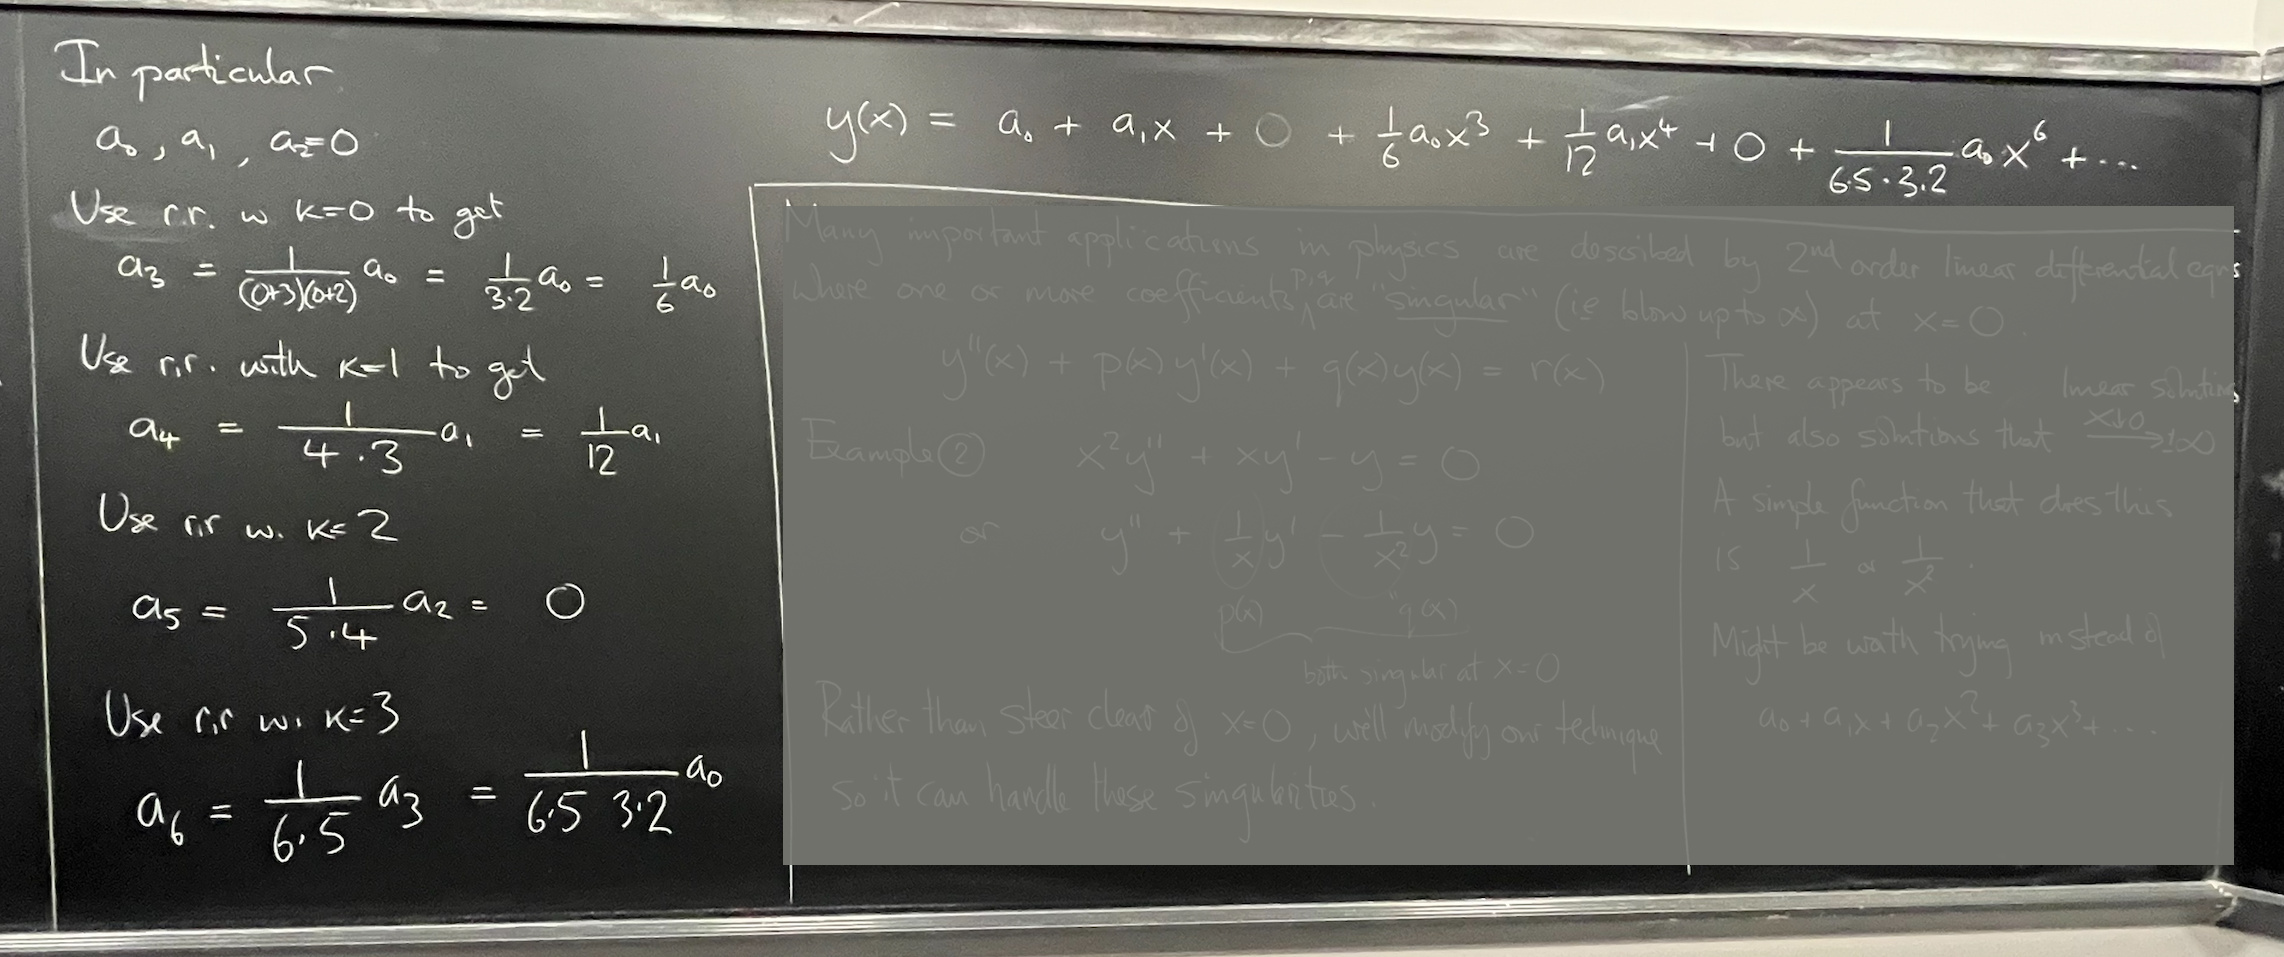 In particular
a₀, a₁, a₂=0
Use r.r. w k=0 to get
a₃ = 1/((0+3)(0+2)) a₀ = 1/(3·2) a₀ = 1/6 a₀
Use r.r. with k=1 to get
a₄ = 1/(4·3) a₁ = 1/12 a₁
Use r.r w. k=2
a₅ = 1/(5·4) a₂ = 0
Use r.r w. k=3
a₆ = 1/(6·5) a₃ = 1/(6·5 3·2) a₀
y(x) = a₀ + a₁x + 0 + 1/6 a₀x³ + 1/12 a₁x⁴ + 0 + 1/(6·5·3·2) a₀x⁶ + ...
Many important applications in physics are described by 2nd order linear differential eqns
where one or more coefficients p,q are "singular" (ie blow up to ∞) at x=0.
y''(x) + p(x)y'(x) + q(x)y(x) = r(x)
Example ② x²y'' + xy' - y = 0
or y'' + 1/x y' - 1/x² y = 0
p(x) q(x)
both singular at x=0
Rather than steer clear of x=0, we'll modify our technique
so it can handle these singularities.
There appears to be linear solutions
but also solutions that x↓0 → ±∞
A simple function that does this
is 1/x or 1/x².
Might be worth trying instead of
a₀ + a₁x + a₂x² + a₃x³ + ...